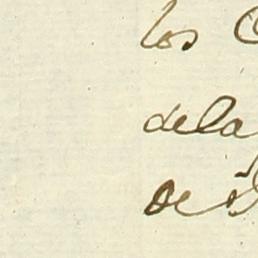 los
dela
de